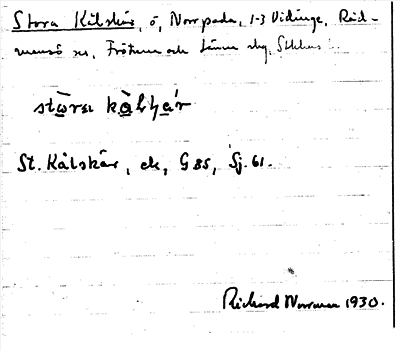 Stora Kålskär, ö, Norrpada, 1-3 Vidinge, Råd-
mansö sn, Frötuna och Länna skg, Sthlms l.
stora
St. Kålskär, ek, G 85, Sj. 61.
Richard Norrman 1930.